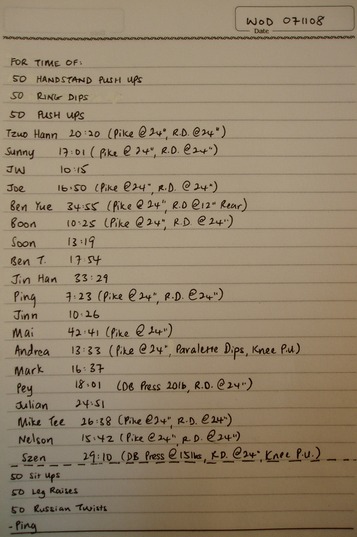 WOD 071108
Date
FOR TIME OF:
50 HANDSTAND PUSH UPS
50 RING DIPS
50 PUSH UPS
Tzuo Hann 20:20 (Pike @ 24", R.D. @ 24")
Sunny 17:01 (Pike @ 24", R.D. @ 24")
JW 10:15
Joe 16:50 (Pike @ 24", R.D. @ 24")
Ben Yue 34:55 (Pike @ 24", R.D @ 12" Rear)
Boon 10:25 (Pike @ 24", R.D. @ 24")
Soon 13:19
Ben T. 17:54
Jin Han 33:29
Ping 7:23 (Pike @ 24", R.D. @ 24")
Jinn 10:26
Mai 42:41 (Pike @ 24")
Andrea 13:33 (Pike @ 24", Paralette Dips, Knee P.U)
Mark 16:37
Pey 18:01 (DB Press 20lb, R.D. @ 24")
Julian 24:51
Mike Tee 26:38 (Pike @ 24", R.D. @ 24")
Nelson 15:42 (Pike @ 24", R.D. @ 24")
Szen 29:10 (DB Press @ 15lbs, R.D. @ 24", Knee P.U.)
50 Sit Ups
50 Leg Raises
50 Russian Twists
- Ping